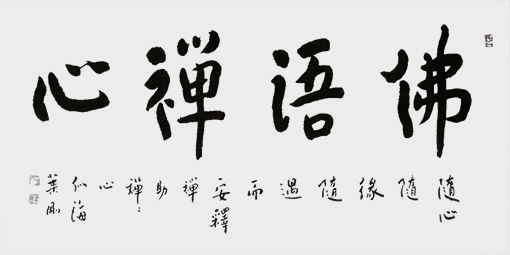 佛語禪心
隨心隨緣隨遇而安釋禪助禪〻心
仁海
葉剛